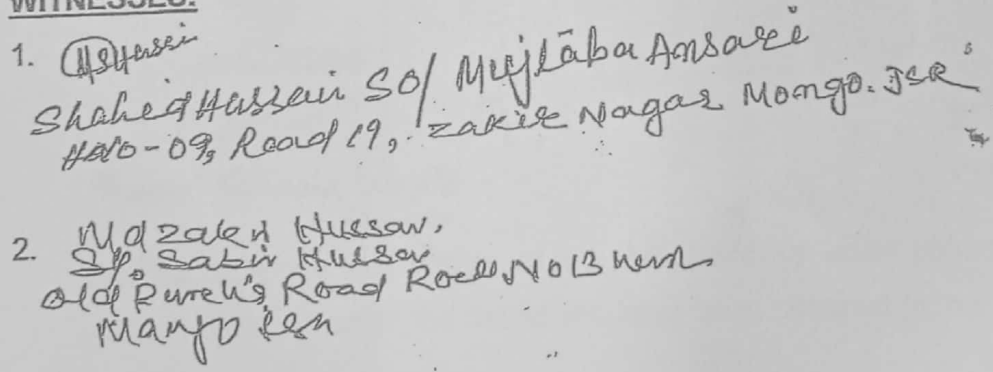 WITNESSES:
1. Hussain
Shahed Hussain SO/ Mujtaba Ansari
HNO-09, Road 19, Zakir Nagar Mango. JSR
2. Md Zaken Hussan.
S/o, Sabir Hussan
Old Road Road No 13
Mango